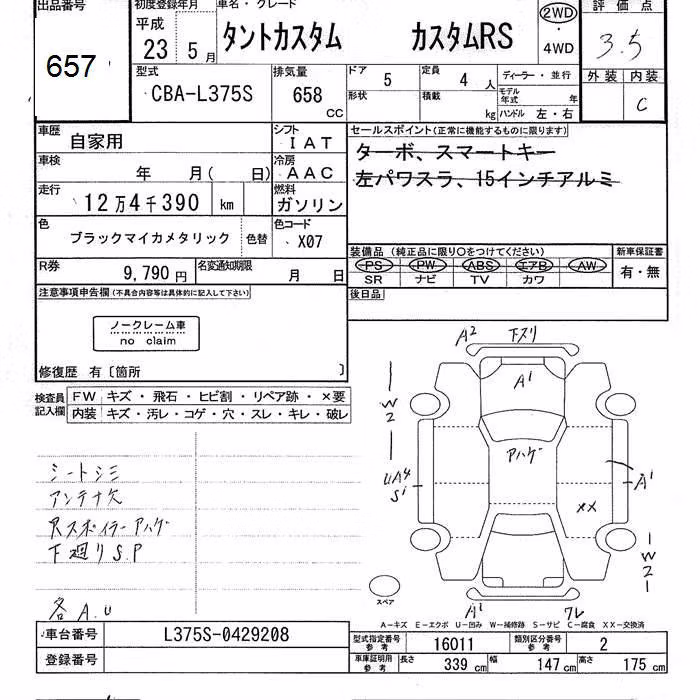 出品番号 初度登録年月 車名・グレード 2WD 評価点
657 平成 23 5月 タントカスタム カスタムRS ・ 4WD 3.5
型式 CBA-L375S 排気量 658 CC ドア 5 定員 4人 ディーラー・並行 外装 内装
形状 積載 kg モデル年式 年 ハンドル 左・右 C
車歴 自家用 シフト IAT セールスポイント(正常に機能するものに限ります)
車検 年 月( 日) 冷房 AAC ターボ、スマートキー
走行 12万4千390 km 燃料 ガソリン 左パワスラ、15インチアルミ
色 ブラックマイカメタリック 色替 色コード X07
装備品 (純正品に限り○をつけてください) 新車保証書
R券 9,790円 名変通知期限 月 日 PS PW ABS エアB AW 有・無
SR ナビ TV カワ
注意事項申告欄(不具合内容等は具体的に記入して下さい) 後日品
ノークレーム車
no claim
修復歴 有〔箇所 〕
検査員記入欄 FW キズ・飛石・ヒビ割・リペア跡・×要
内装 キズ・汚レ・コゲ・穴・スレ・キレ・破レ
A2 下スリ
A1
W2
アハゲ
UA4
S1
A1
XX
W2
シートシミ
アンテナ欠
Rスポイラーアハゲ
下廻りS.P
各A.U
スペア
A1 ワレ
A－キズ E－エクボ U－凹み W－補修跡 S－サビ C－腐食 XX－交換済
車台番号 L375S-0429208 型式指定番号 参考 16011 類別区分番号 参考 2
登録番号 車庫証明用 参考 長さ 339 cm 幅 147 cm 高さ 175 cm